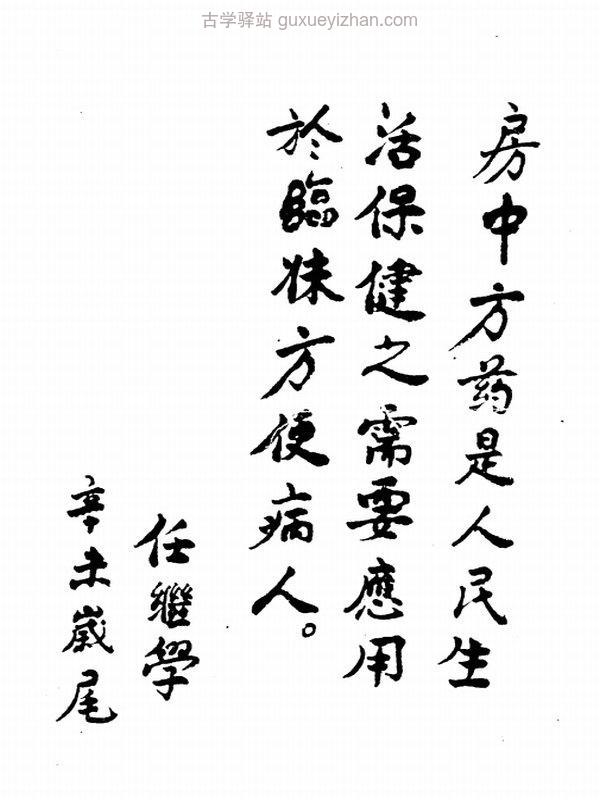 古学驿站 guxueyizhan.com
房中方药是人民生
活保健之需要應用
於臨牀方便病人。
任繼學
辛未歲尾